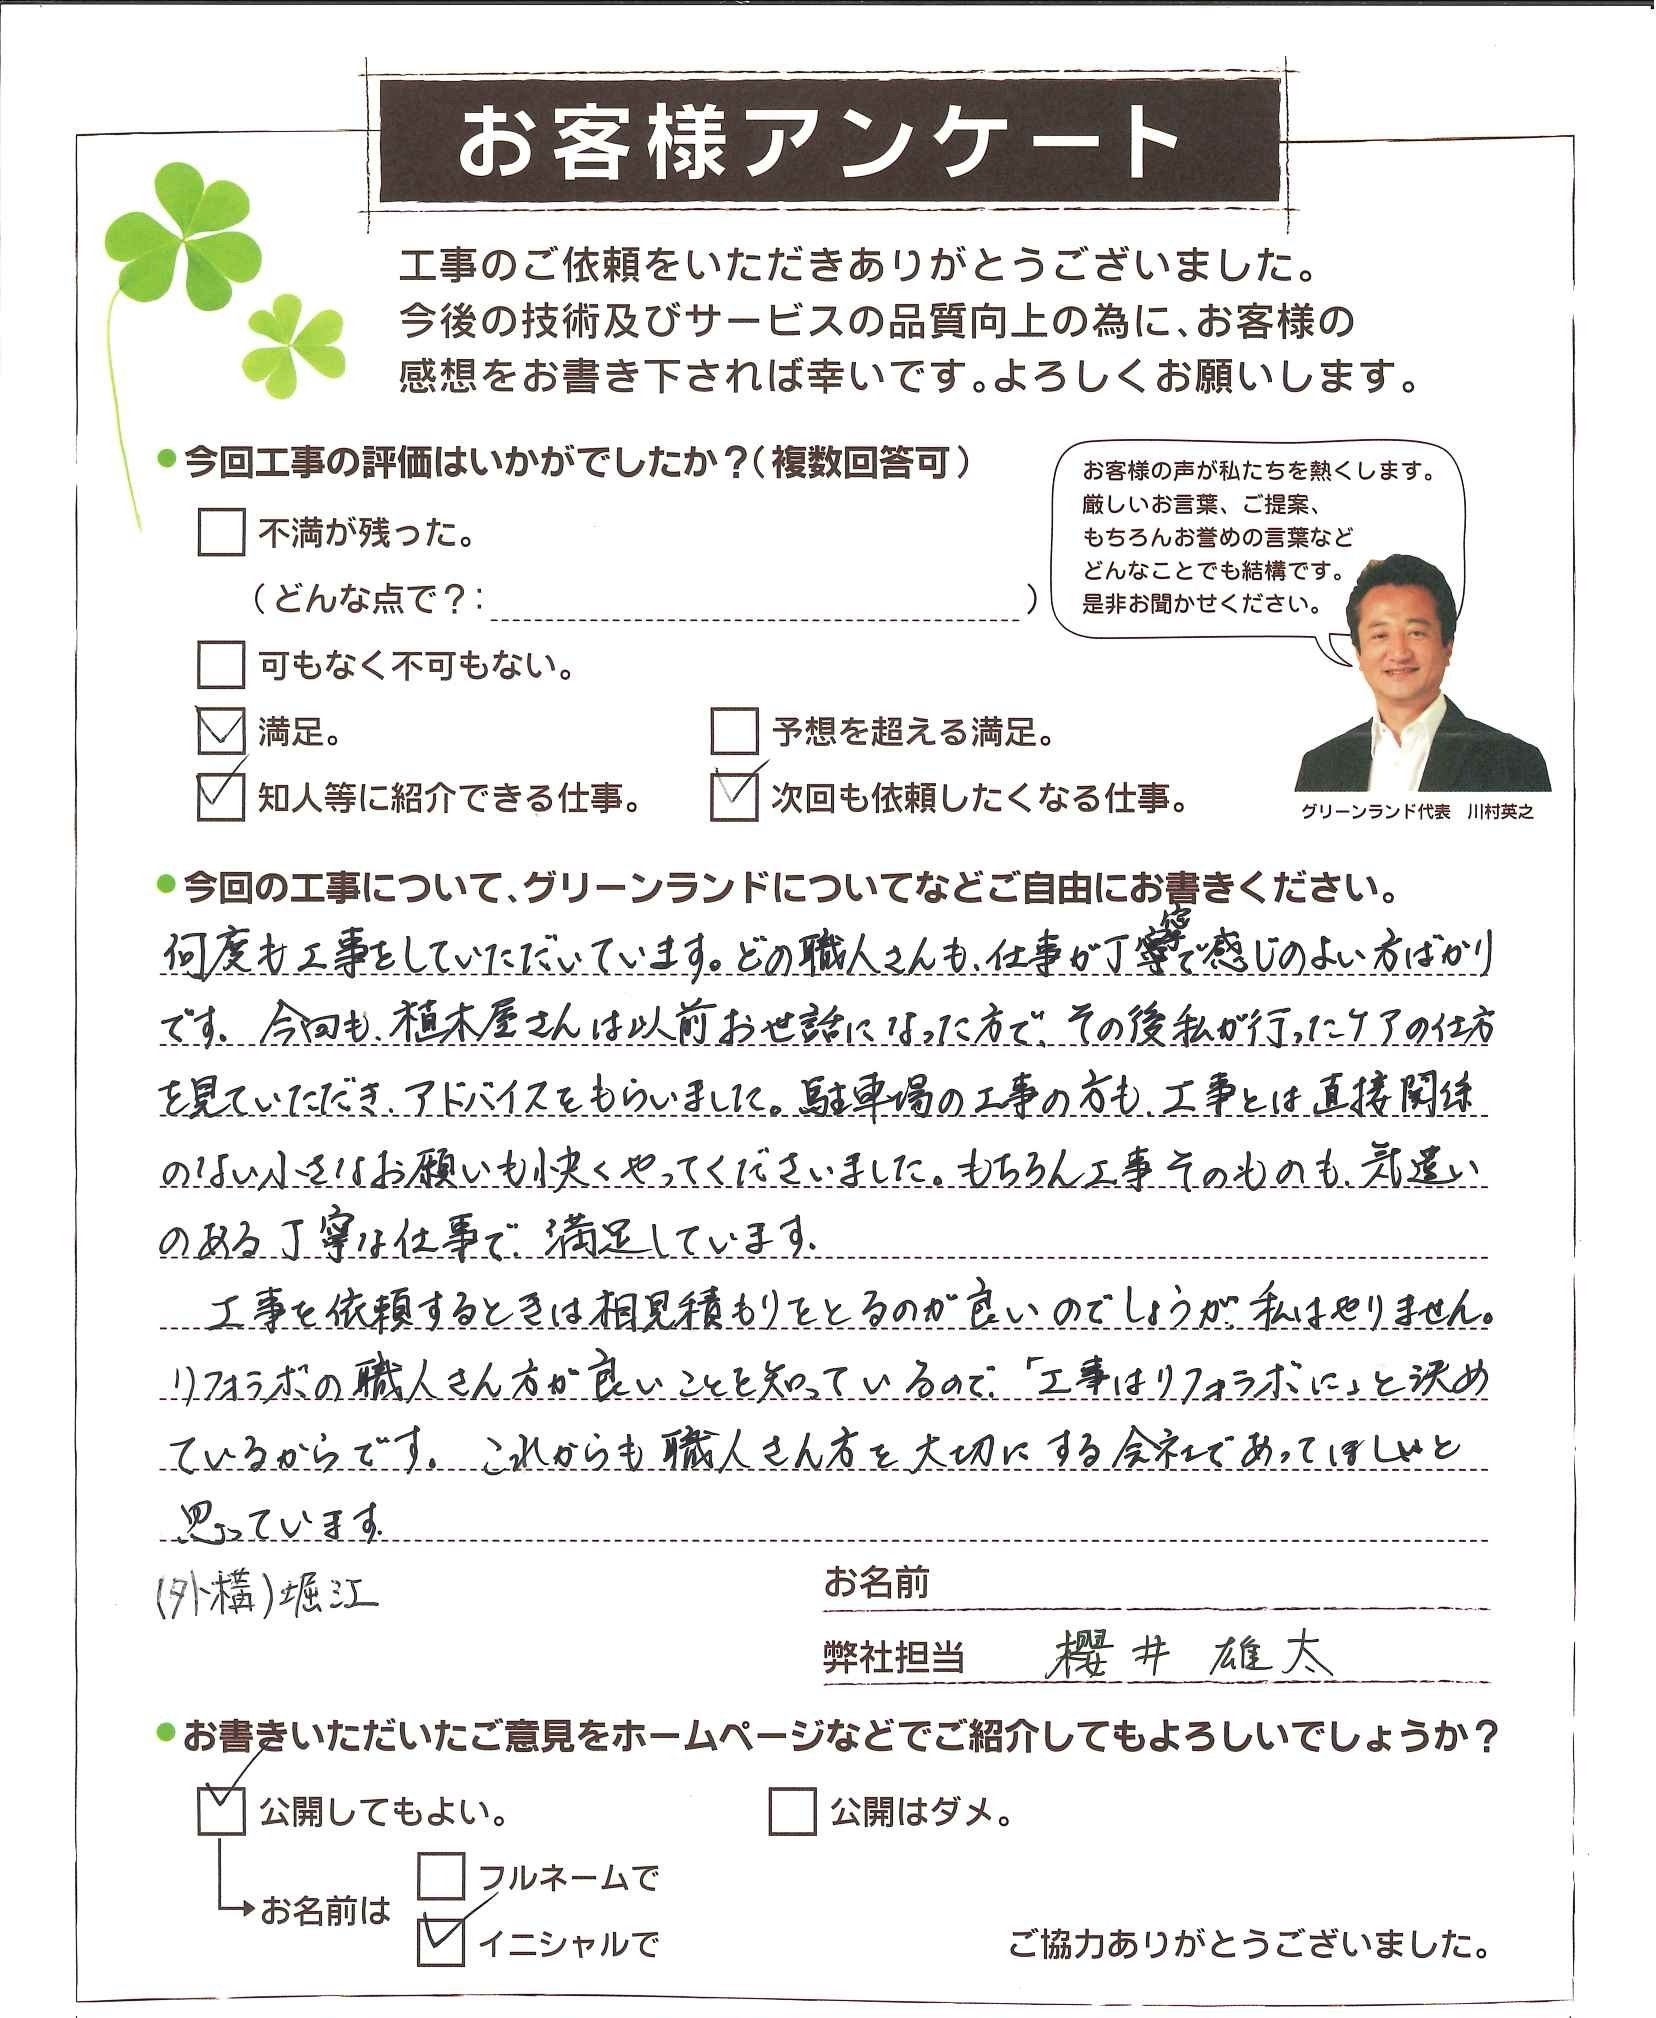 お客様アンケート
工事のご依頼をいただきありがとうございました。
今後の技術及びサービスの品質向上の為に、お客様の
感想をお書き下されば幸いです。よろしくお願いします。
●今回工事の評価はいかがでしたか?(複数回答可)
不満が残った。
(どんな点で?: )
可もなく不可もない。
満足。
予想を超える満足。
知人等に紹介できる仕事。
次回も依頼したくなる仕事。
お客様の声が私たちを熱くします。
厳しいお言葉、ご提案、
もちろんお誉めの言葉など
どんなことでも結構です。
是非お聞かせください。
グリーンランド代表 川村英之
●今回の工事について、グリーンランドについてなどご自由にお書きください。
何度も工事をしていただいています。どの職人さんも、仕事が丁寧で感じのよい方ばかり
です。今回も、植木屋さんは以前お世話になった方で、その後私が行ったケアの仕方
を見ていただき、アドバイスをもらいました。駐車場の工事の方も、工事とは直接関係
のない小さなお願いも快くやってくださいました。もちろん工事そのものも、気遣い
のある丁寧な仕事で、満足しています。
工事を依頼するときは相見積もりをとるのが良いのでしょうが、私はやりません。
リフォラボの職人さん方が良いことを知っているので、「工事はリフォラボに」と決め
ているからです。これからも職人さん方を大切にする会社であってほしいと
思っています。
(外構)堀江
お名前
弊社担当 櫻井 雄太
●お書きいただいたご意見をホームページなどでご紹介してもよろしいでしょうか?
公開してもよい。
公開はダメ。
お名前は
フルネームで
イニシャルで
ご協力ありがとうございました。